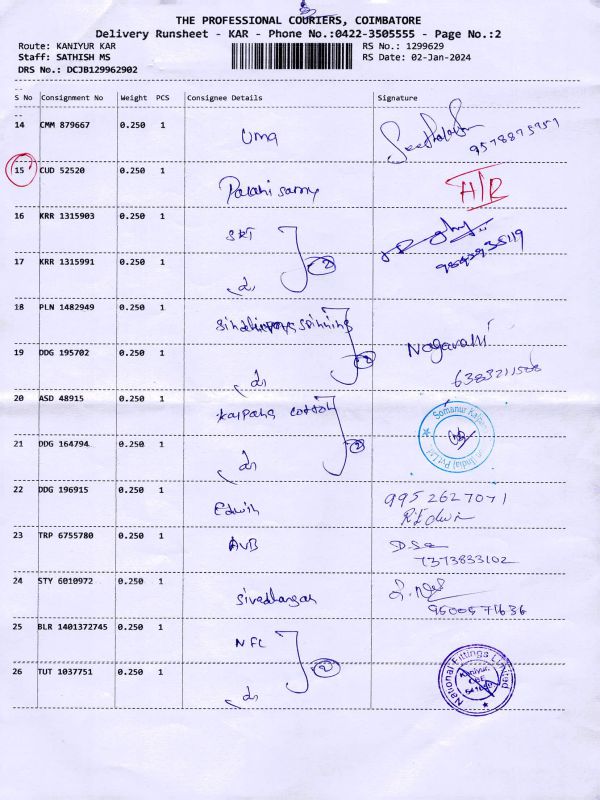 THE PROFESSIONAL COURIERS, COIMBATORE
Delivery Runsheet - KAR - Phone No.:0422-3505555 - Page No.:2
Route: KANIYUR KAR RS No.: 1299629
Staff: SATHISH MS RS Date: 02-Jan-2024
DRS No.: DCJB129962902
S No Consignment No Weight PCS Consignee Details Signature
14 CMM 879667 0.250 1 Uma
15 CUD 52520 0.250 1 Palanisamy
16 KRR 1315903 0.250 1 SRT
2
17 KRR 1315991 0.250 1
18 PLN 1482949 0.250 1 spinning
19 DDG 195702 0.250 1
2
20 ASD 48915 0.250 1 kalpana cotton
Somanur Kalpana
India) Pvt Ltd
21 DDG 164794 0.250 1
2
22 DDG 196915 0.250 1 Edwin 9952627071
R.Edwin
23 TRP 6755780 0.250 1 AVB
7373833102
24 STY 6010972 0.250 1
9500571636
25 BLR 1401372745 0.250 1 NFL
2
National Fittings Limited
Kaniyur,
CBE
26 TUT 1037751 0.250 1